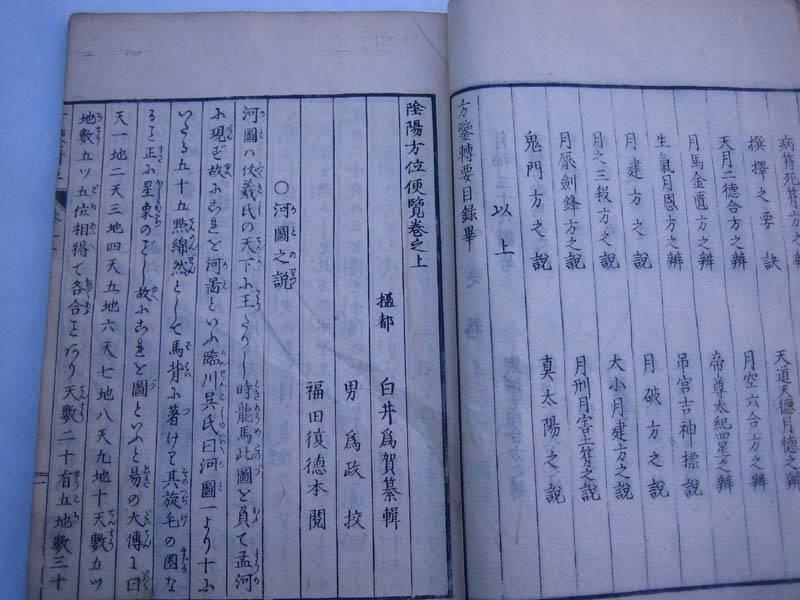 病符死符
天道天徳月徳之
撰擇之要訣
月空六合方之辨
天月二德合方之辨
帝尊太紀四星之辨
月馬金匱方之辨
吊宮吉神標説
生氣月恩方之辨
月破方之説
月建方之說
大小月建方之説
月之三殺方之説
月刑月害土符之説
月厭劍鋒方之説
真太陽之説
鬼門方之說
以上
方鑒轉要目録畢
陰陽方位便覧巻之上
白井爲賀纂輯
男爲政挍
福田復德本閲
○河圖之説
河圖ハ伏羲氏の天下に王たりし時龍馬此圖を負て孟河
に現ず故にこれを河圖といふ臨川呉氏曰河圖一より十に
いたる五十五點綿然として馬背に著けて其旋毛の圏な
ること正に星象のごとし故にこれを圖といふと易の大傳に曰
天一地二天三地四天五地六天七地八天九地十天數五ツ
地數五ツ五位相得て各合ことあり天數二十有五地數三十